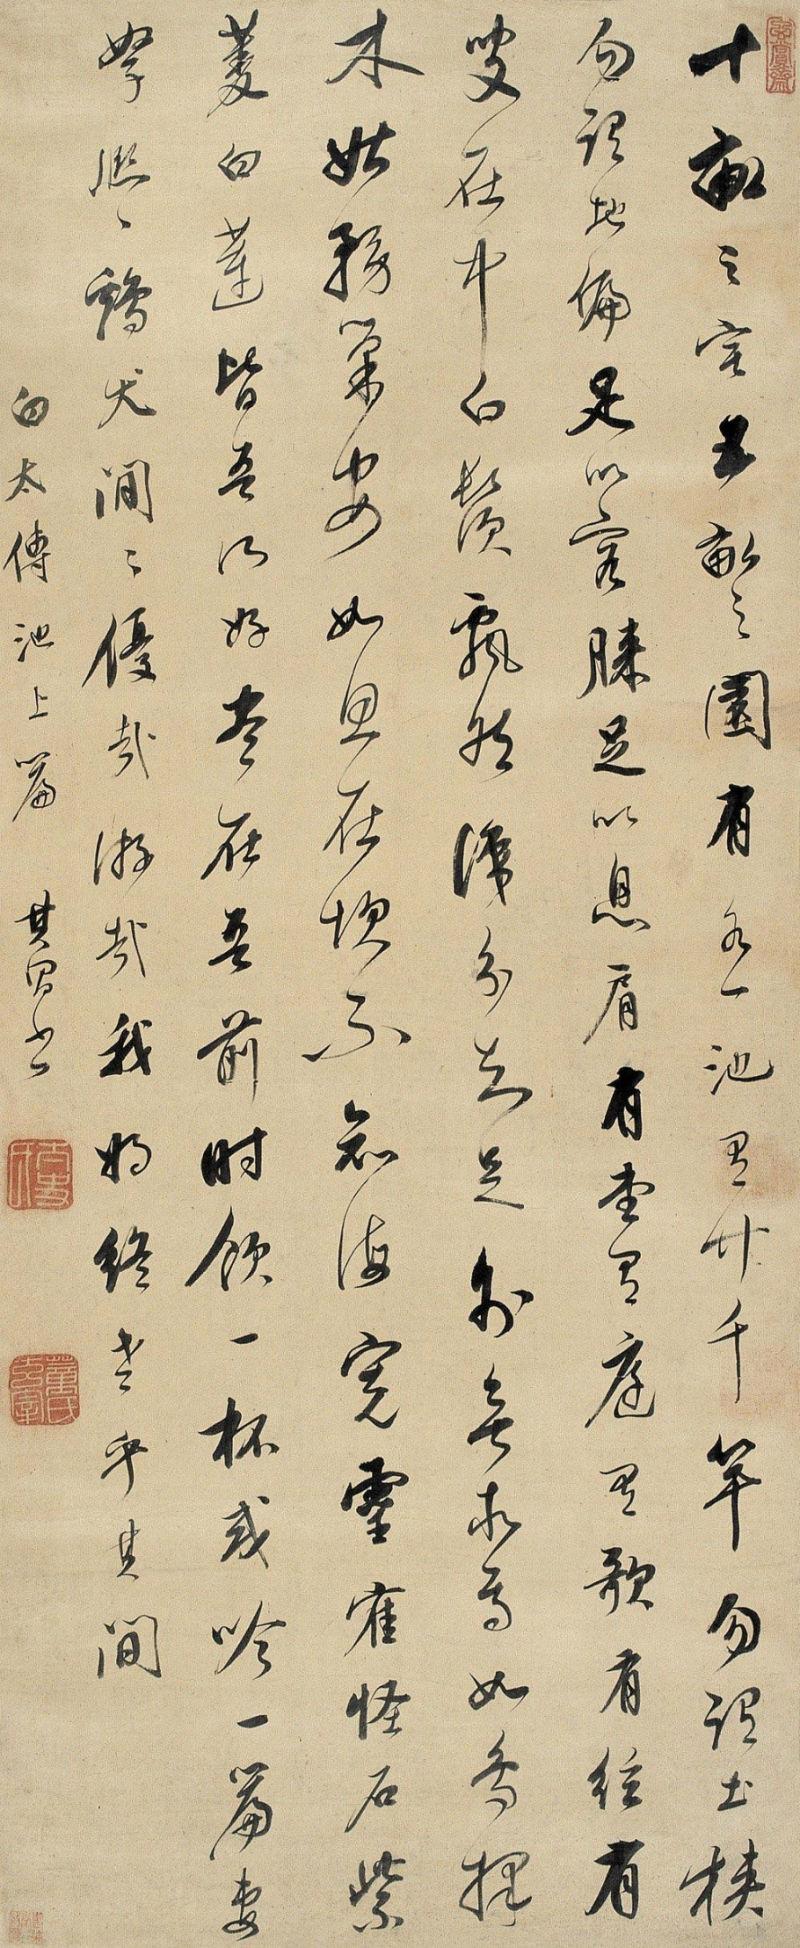 玄賞齋
十畝之宅五畝之園有水一池有竹千竿勿謂土狹
勿謂地偏足以容膝足以息肩有堂有庭有歌有絃有
叟在中白鬚飄然識分知足外無求焉如鳥擇
木姑務巢安如在坎不知海寬靈寉怪石紫
菱白蓮皆吾所好盡在吾前時飲一杯或吟一篇妻
孥熙〻雞犬閒〻優哉游哉我將終老乎其間
白太傅池上篇 其昌書
董氏玄宰